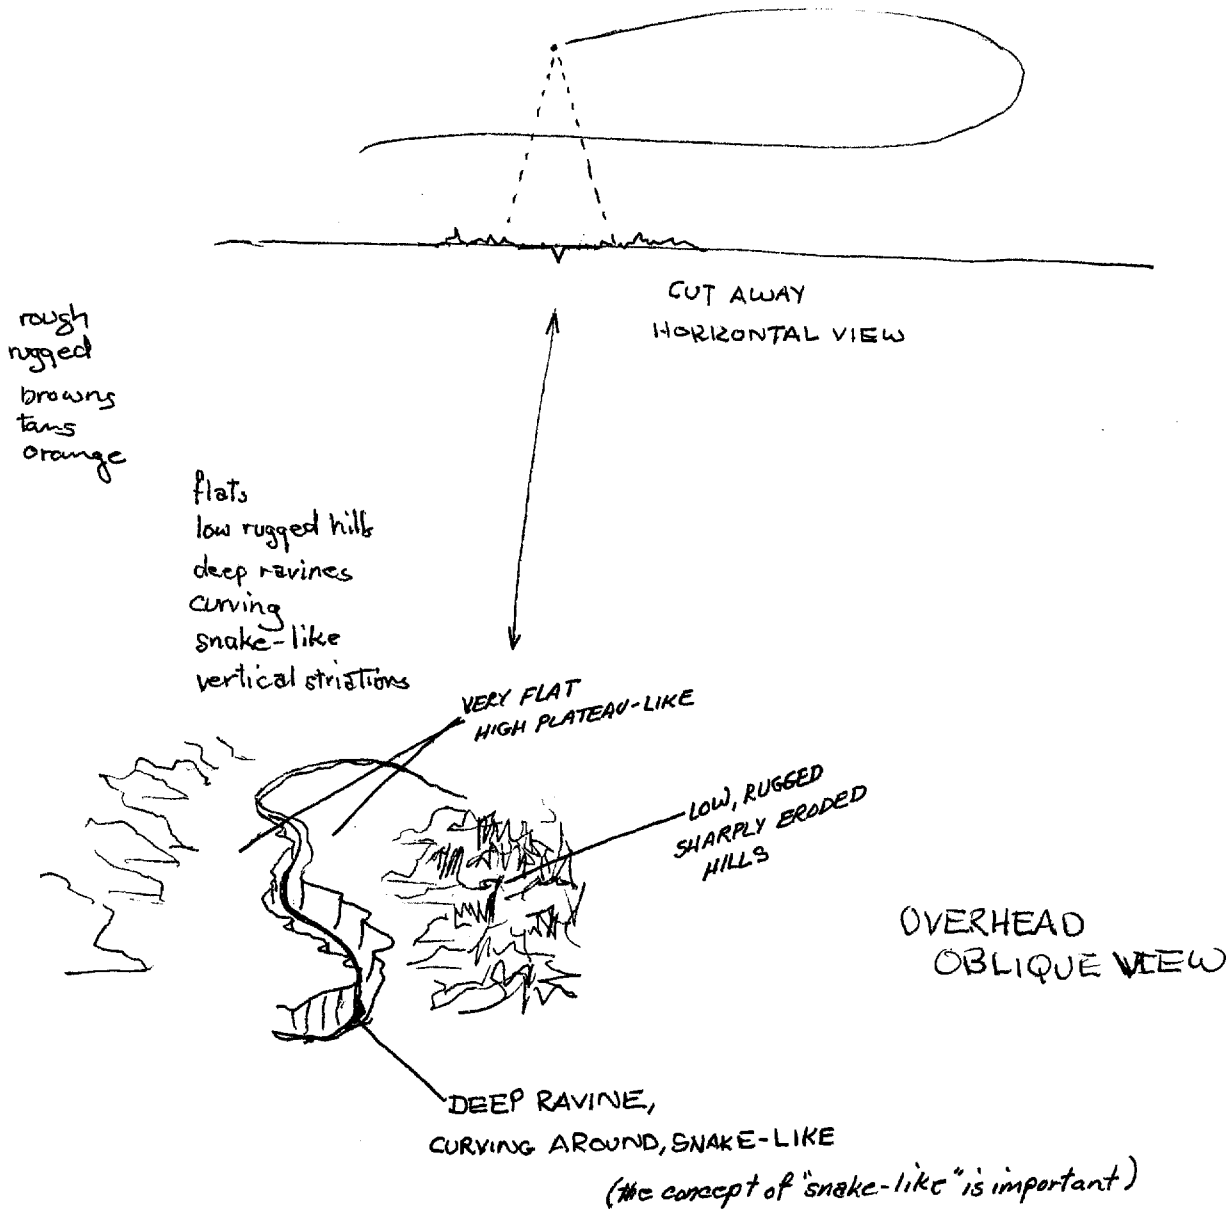 CUT AWAY
HORIZONTAL VIEW
rough
rugged
browns
tans
orange
flats
low rugged hills
deep ravines
curving
snake-like
vertical striations
VERY FLAT
HIGH PLATEAU-LIKE
LOW, RUGGED
SHARPLY ERODED
HILLS
OVERHEAD
OBLIQUE VIEW
DEEP RAVINE,
CURVING AROUND, SNAKE-LIKE
(the concept of "snake-like" is important)